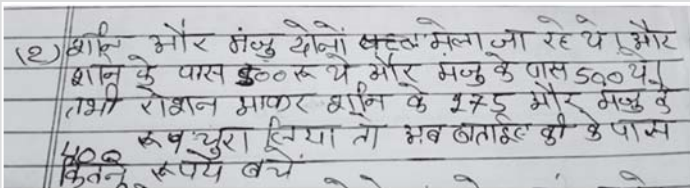 (2) शानि और मंजु दोनों मेला जा रहे थे। और
शानि के पास 500रू थे और मजु के पास 500 थे।
तभी रोशन आकर शानि के 275 और मजु के
400 रू चुरा लिया तो अब बताइए की के पास
कितने रूपये बचे